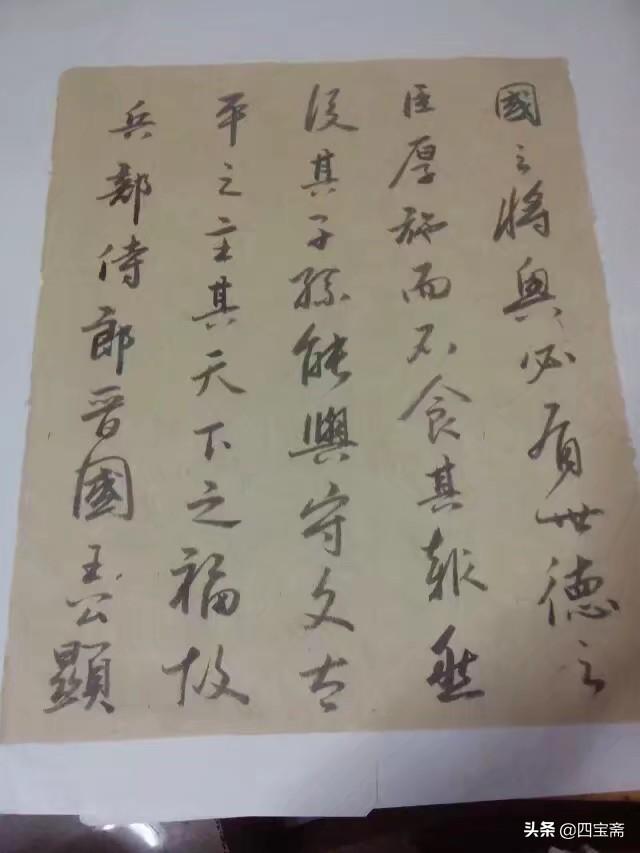 國之將興必有世德之
臣厚施而不食其報然
後其子孫能與守文太
平之主其天下之福故
兵部侍郎晋國王公顯
头条 @四宝斋